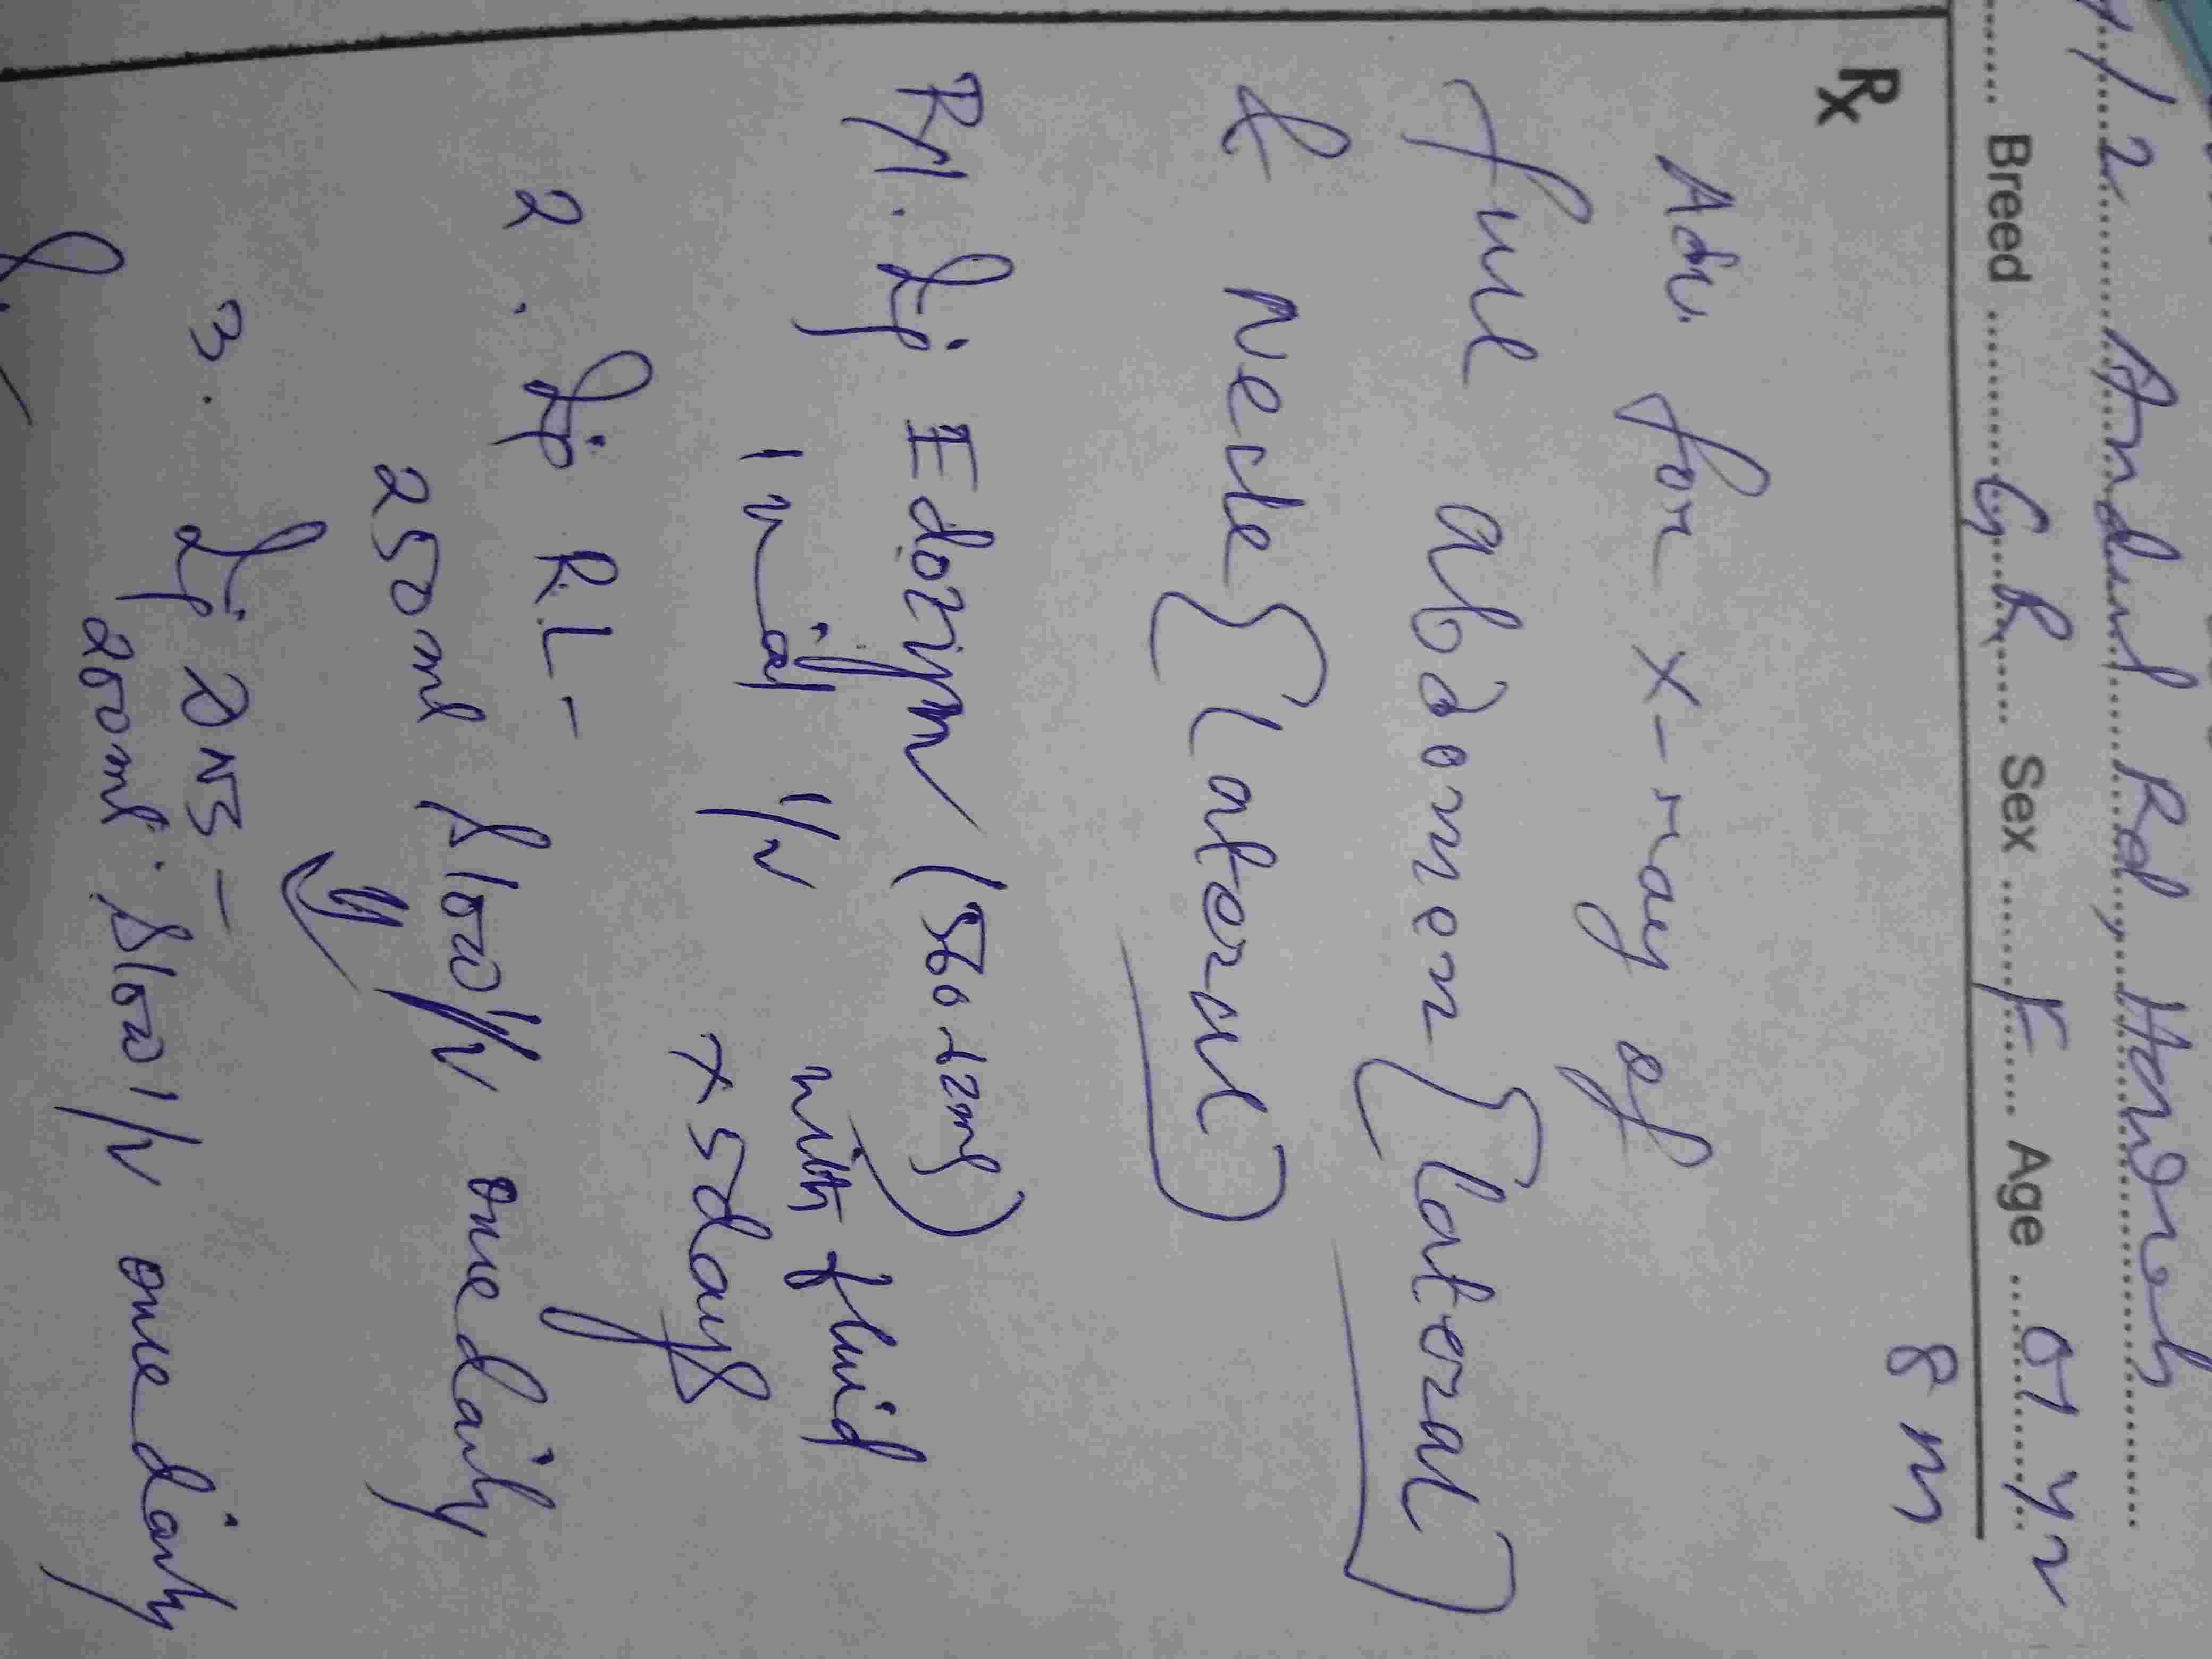 / 2 Andul Rd, Howrah
Breed GR Sex F Age 01 yr
8 m
Rx
Adv. for x-ray of
the abdomen {Lateral}
& Neck {Lateral}
R/1. Inj (560 mg)
1 inj I/V with fluid
x 5 days
2. Inj RL -
250 ml slow I/V one daily
3. Inj DNS -
200 ml slow I/V one daily